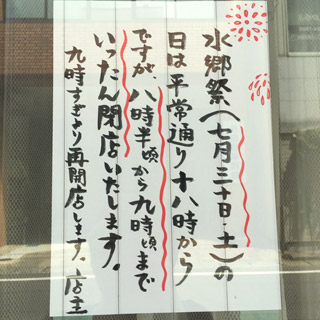 水郷祭(七月三十日・土)の
日は平常通り十八時から
ですが、八時半頃から九時頃まで
いったん閉店いたします。
九時すぎより再開店します。店主